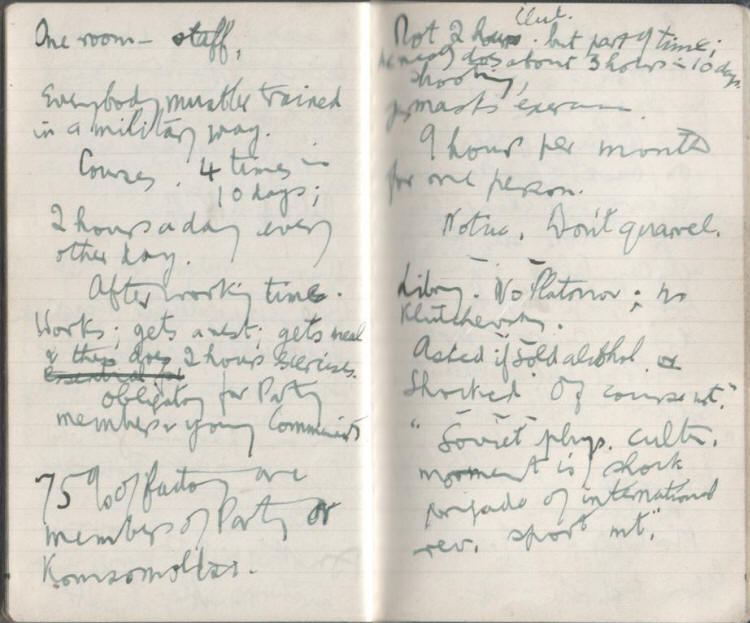 One room – staff,
Everybody must be trained
in a military way.
Courses. 4 times in
10 days;
2 hours a day every
other day.
After working times.
Works; gets a rest; gets meal
& then does 2 hours exercises.
obligatory for Party
members & young Communists
75% of factory are
members of Party or
Komsomoltsi.
Club.
Not 2 hours. but part of time;
does about 3 hours in 10 days.
shooting,
gasmasks exercise.
9 hours per month
for one person.
Notice. Don't quarrel.
Library. No Platonov; no
Klutchevsky.
Asked if sold alcohol.
Shocked "Of course not."
"Soviet phys. cultr.
movement is shock
brigade of international
rev. sport mt."